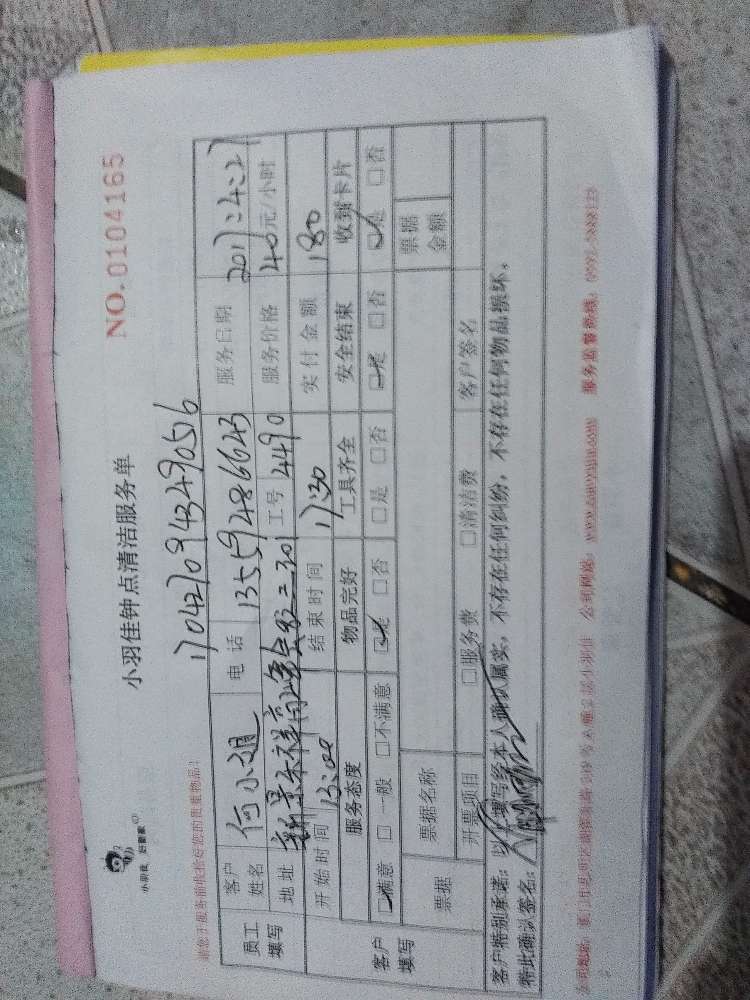 小羽佳 好管家
小羽佳钟点清洁服务单
NO.0104165
170427094349056
请您于服务前收拾好您的贵重物品!
员工填写
客户姓名 何小姐 电话 13559486643 服务日期 2017.4.27
地址 工号 4490 服务价格 40元/小时
开始时间 13:00 结束时间 17:30 实付金额 180
客户填写
服务态度 物品完好 工具齐全 安全结束 收到卡片
满意 一般 不满意 是 否 是 否 是 否 是 否
票据 票据名称 票据金额
开票项目 服务费 清洁费 客户签名
客户特别承诺:以上填写经本人确认属实,不存在任何纠纷,不存在任何物品损坏,
特此确认签名:
公司地址: 公司网址: 服务监督热线: